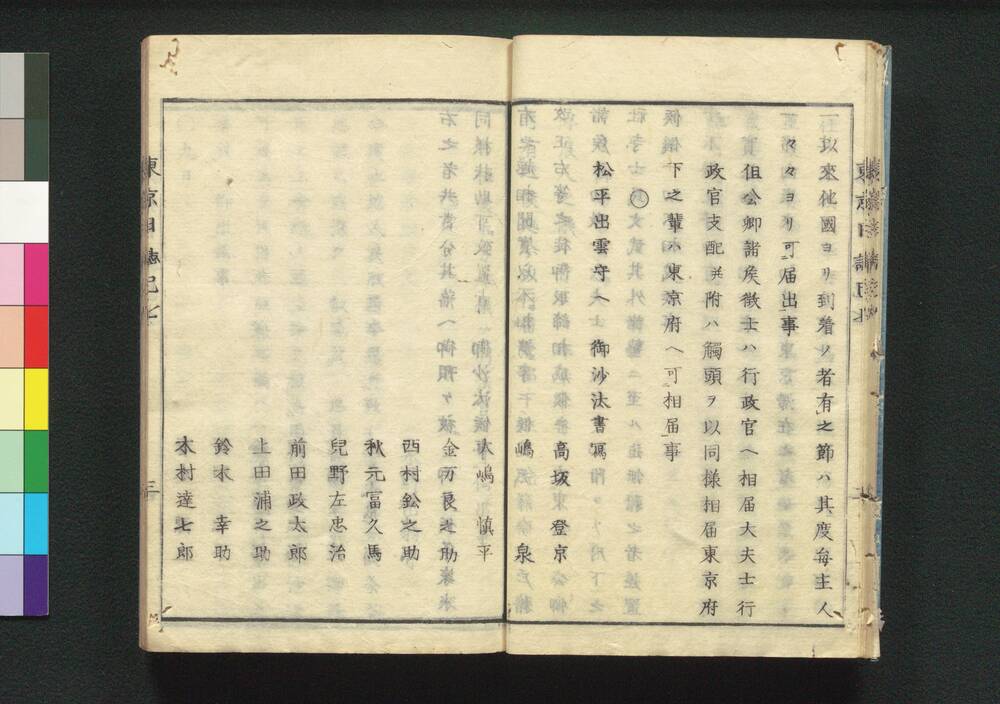 一以來他國ヨリ到着ノ者有之節ハ其度每主人
々々ヨリ可届出事
但公卿諸矦徵士ハ行政官ヘ相届大夫士行
政官支配并附ハ觸頭ヲ以同樣相届東京府
下之輩ハ東京府ヘ可相届事
○
松平出雲守ヘ御沙汰書寫
高坂登京
嶋泉
大嶋慎平
金刀良之助
西村鈆之助
秋元冨久馬
兒野左忠治
前田政太郎
上田浦之助
鈴木幸助
木村達七郎
東京日誌
三